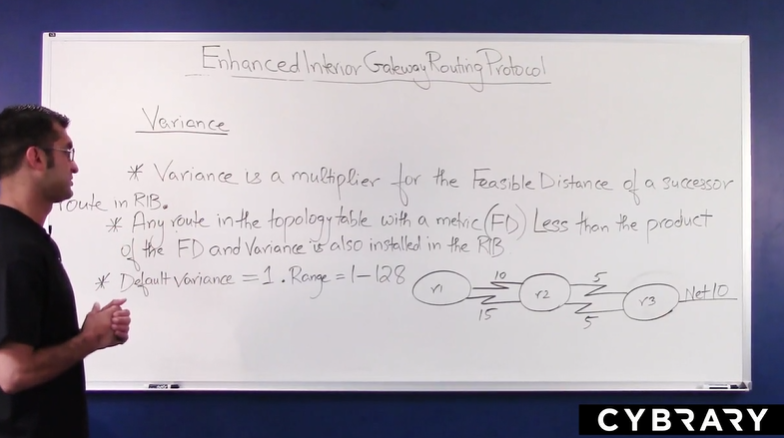 Enhanced Interior Gateway Routing Protocol
Variance
* Variance is a multiplier for the Feasible Distance of a successor
route in RIB.
* Any route in the topology table with a metric (FD) Less than the product
of the FD and Variance is also installed in the RIB
* Default variance = 1. Range = 1-128
r1 10 15 r2 5 5 r3 Net 10
CYBRARY